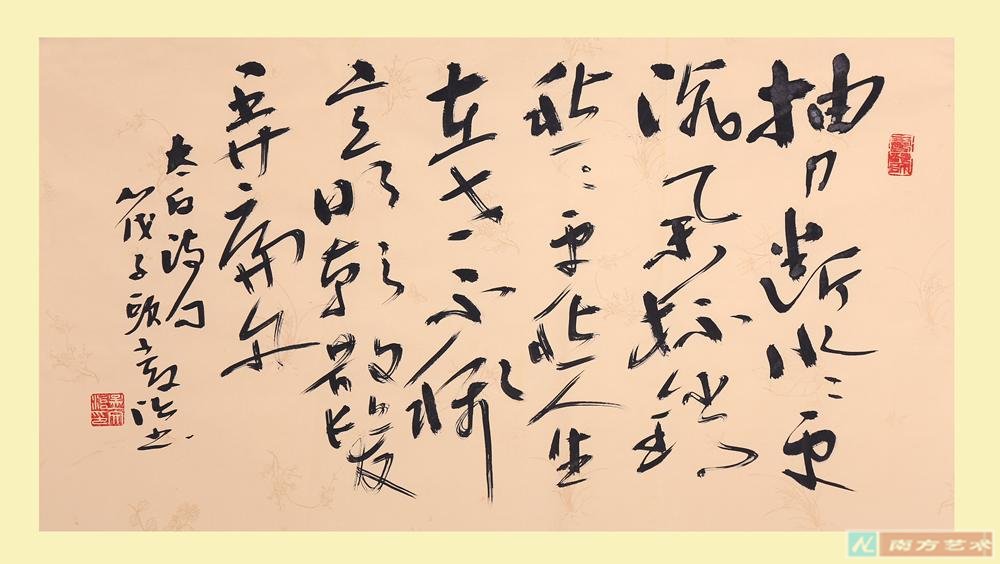 抽刀断水〻更
流举杯销
愁〻更愁人生
在世不称
意明朝散发
弄扁舟
太白诗句
戊子
南方艺术